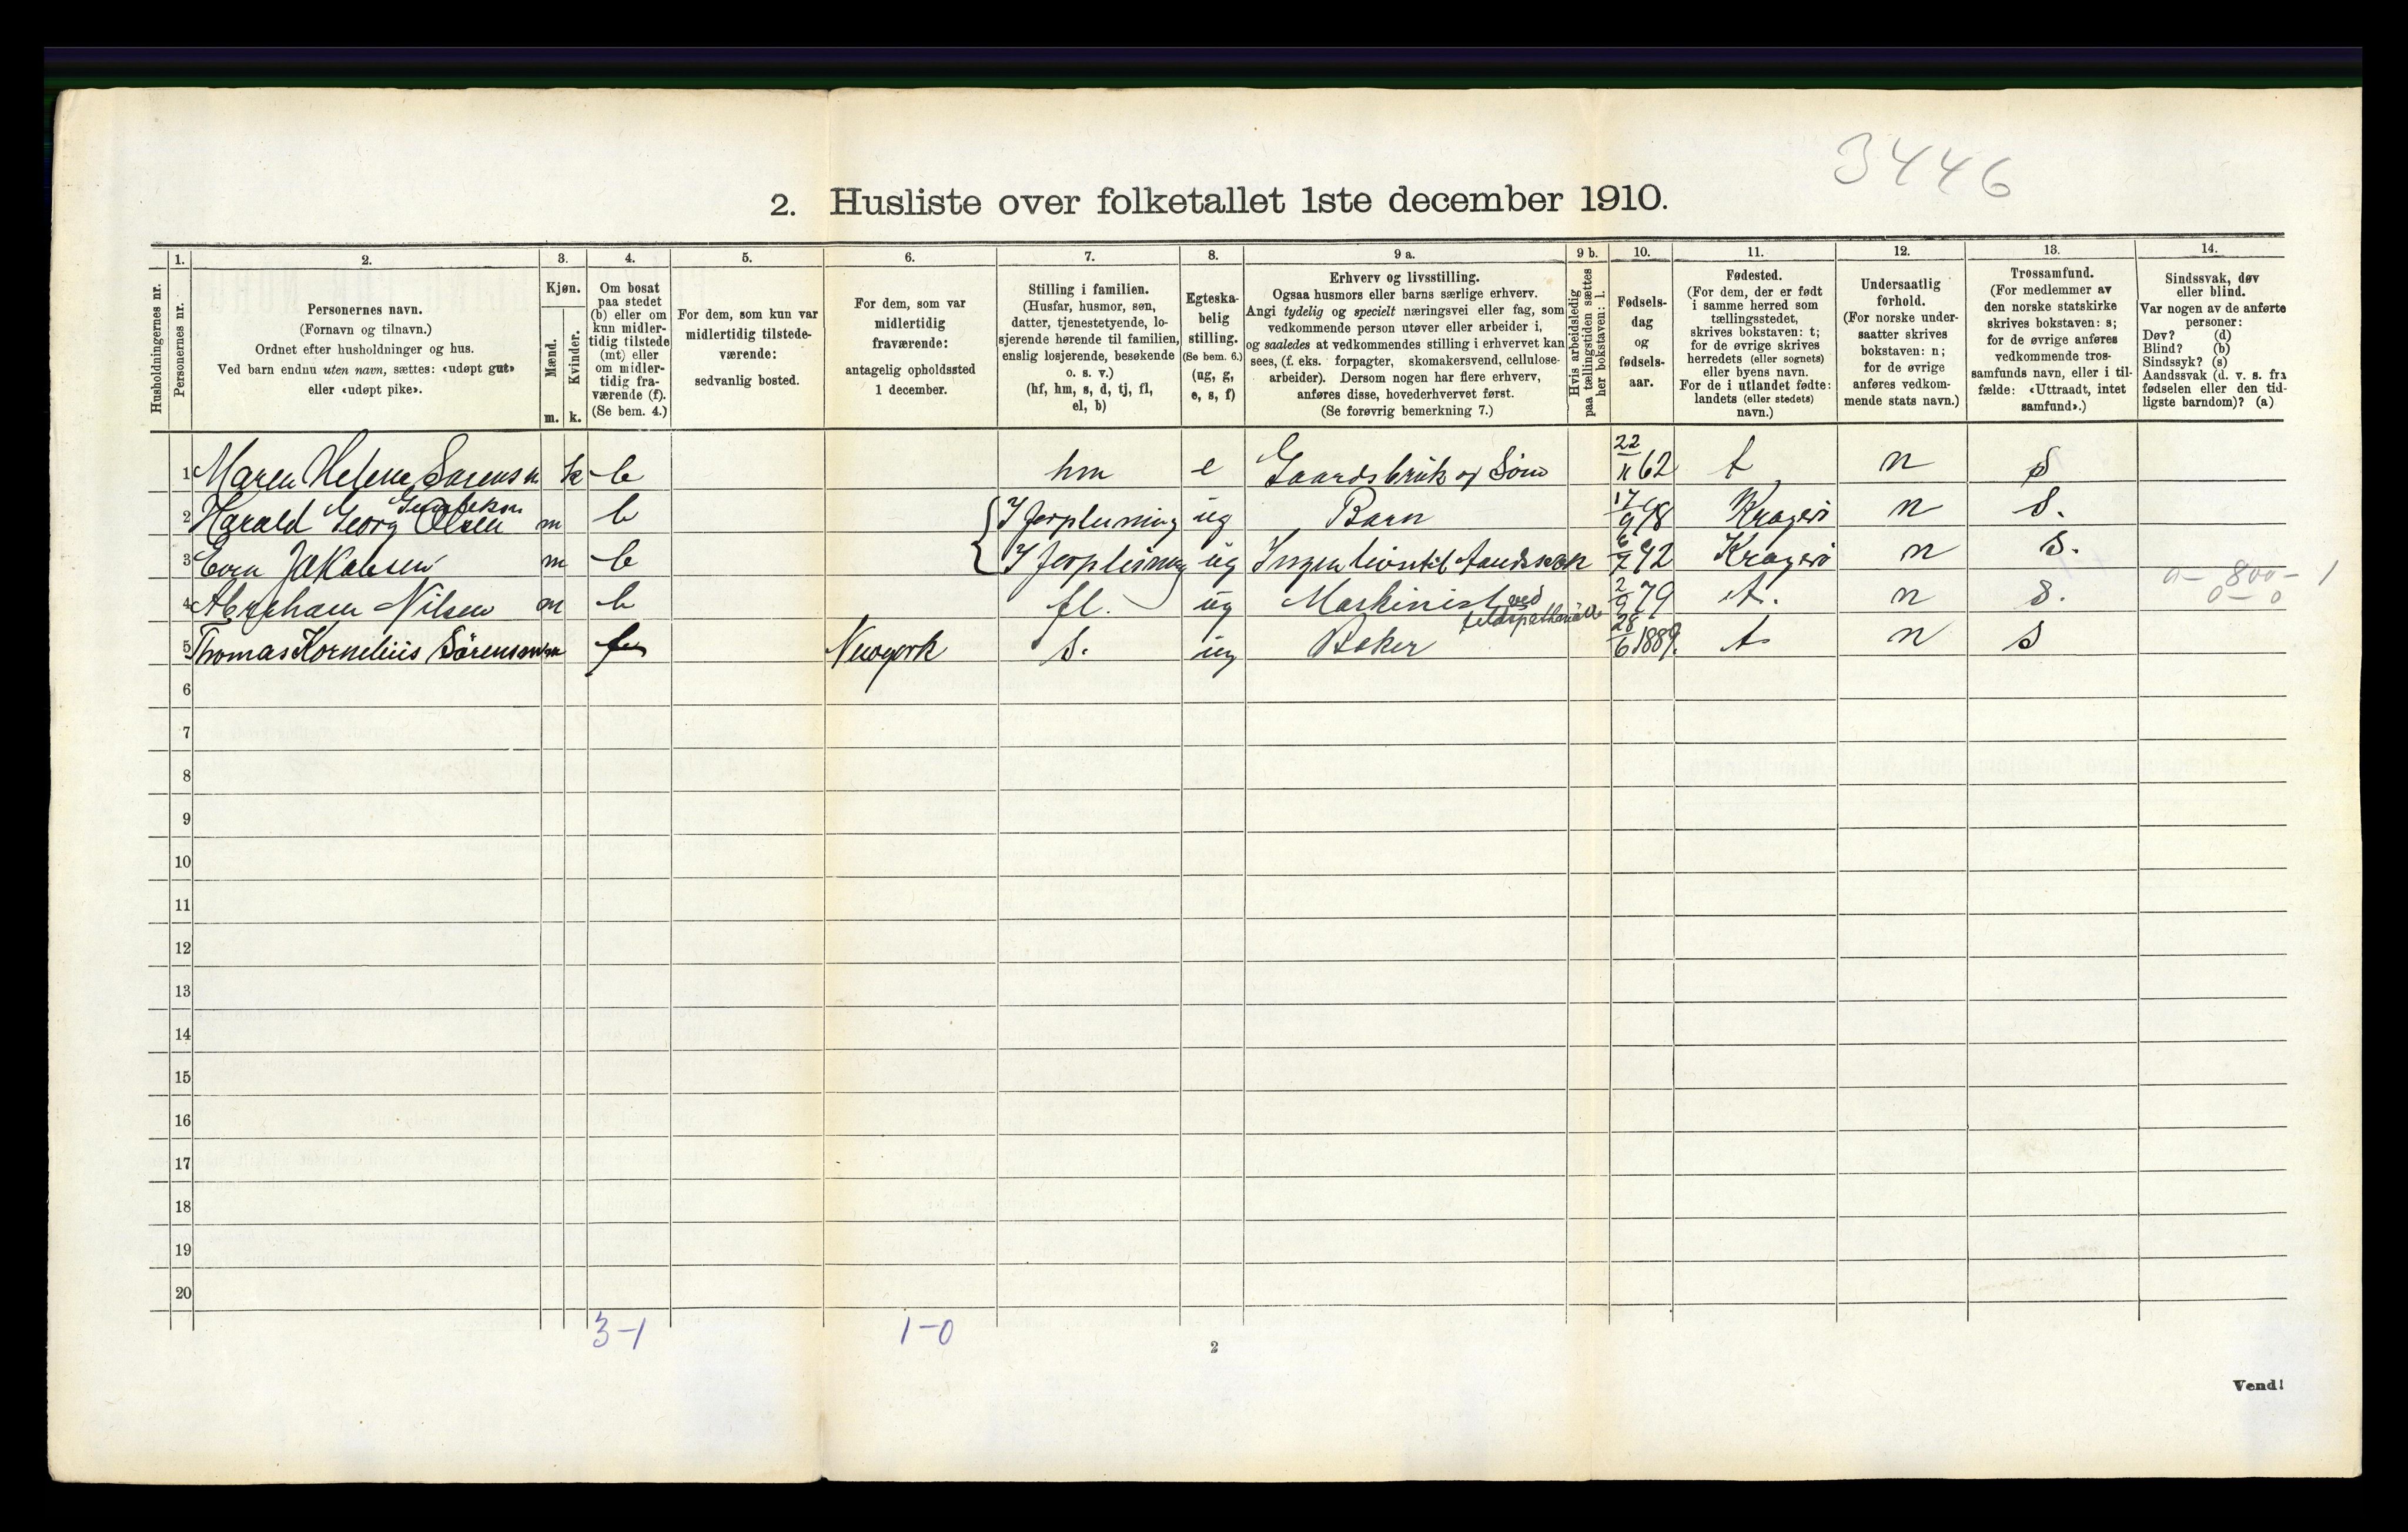 3446
2. Husliste over folketallet 1ste december 1910.
1. 2. 3. 4. 5. 6. 7. 8. 9 a. 9 b. 10. 11. 12. 13. 14.
Husholdningernes nr.
Personernes nr.
Personernes navn.
(Fornavn og tilnavn.)
Ordnet efter husholdninger og hus.
Ved barn endnu uten navn, sættes: «udøpt gut»
eller «udøpt pike».
Kjøn.
Mænd.
m.
Kvinder.
k.
Om bosat
paa stedet
(b) eller om
kun midler-
tidig tilstede
(mt) eller
om midler-
tidig fra-
værende (f).
(Se bem. 4.)
For dem, som kun var
midlertidig tilstede-
værende:
sedvanlig bosted.
For dem, som var
midlertidig
fraværende:
antagelig opholdssted
1 december.
Stilling i familien.
(Husfar, husmor, søn,
datter, tjenestetyende, lo-
sjerende hørende til familien,
enslig losjerende, besøkende
o. s. v.)
(hf, hm, s, d, tj, fl,
el, b)
Egteska-
belig
stilling.
(Se bem. 6.)
(ug, g,
e, s, f)
Erhverv og livsstilling.
Ogsaa husmors eller barns særlige erhverv.
Angi tydelig og specielt næringsvei eller fag, som
vedkommende person utøver eller arbeider i,
og saaledes at vedkommendes stilling i erhvervet kan
sees, (f. eks. forpagter, skomakersvend, cellulose-
arbeider). Dersom nogen har flere erhverv,
anføres disse, hovederhvervet først.
(Se forøvrig bemerkning 7.)
Hvis arbeidsledig
paa tællingstiden sættes
her bokstaven: l.
Fødsels-
dag
og
fødsels-
aar.
Fødested.
(For dem, der er født
i samme herred som
tællingsstedet,
skrives bokstaven: t;
for de øvrige skrives
herredets (eller sognets)
eller byens navn.
For de i utlandet fødte:
landets (eller stedets)
navn.)
Undersaatlig
forhold.
(For norske under-
saatter skrives
bokstaven: n;
for de øvrige
anføres vedkom-
mende stats navn.)
Trossamfund.
(For medlemmer av
den norske statskirke
skrives bokstaven: s;
for de øvrige anføres
vedkommende tros-
samfunds navn, eller i til-
fælde: «Uttraadt, intet
samfund».)
Sindssvak, døv
eller blind.
Var nogen av de anførte
personer:
Døv? (d)
Blind? (b)
Sindssyk? (s)
Aandssvak (d. v. s. fra
fødselen eller den tid-
ligste barndom)? (a)
1 Maren Helene Sørensen k b hm e Gaardsbruk og Søm 22/11 62 t n s
2 Harald Georg Olsen m b I forpleining ug Barn 17/9 98 Kragerø n S.
3 Even Jakobsen m b I forpleining ug Ingen livsstil. Aandssvak 6/7 92 Kragerø n S.
4 Abraham Nilsen m b fl. ug Maskinist ved 2/9 79 t. n S.
a- 800- 1
0-0
5 Thomas Kornelius Sörensen m f Newyork S. ug Baker 28/6 1889. t n S
6
7
8
9
10
11
12
13
14
15
16
17
18
19
20
3-1 1-0
2
Vend!